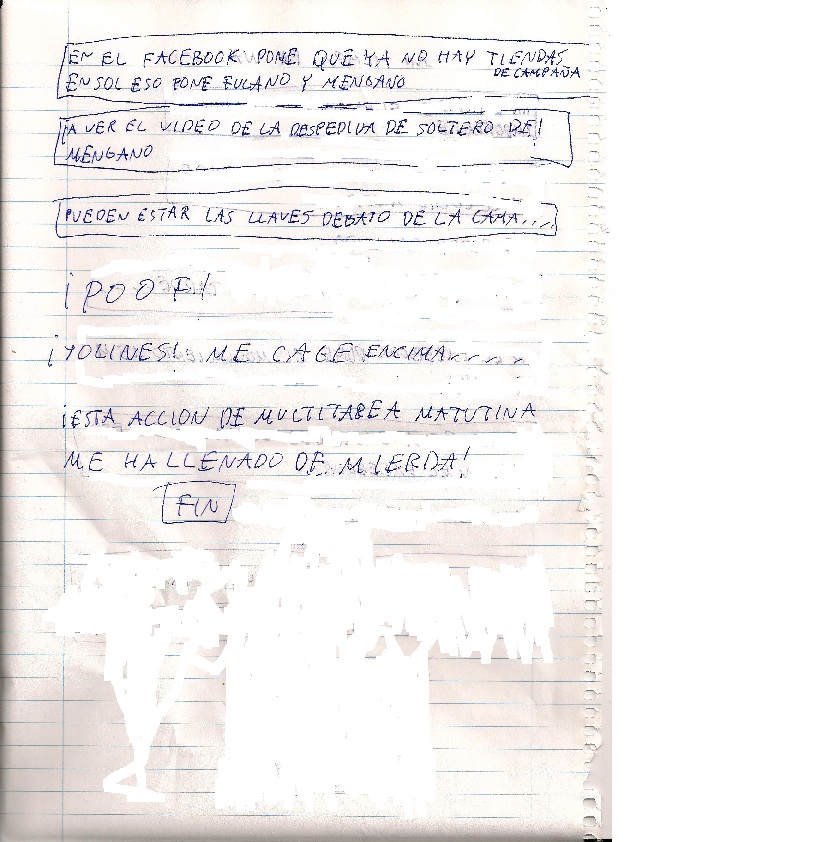 EN EL FACEBOOK PONE QUE YA NO HAY TIENDAS
DE CAMPAÑA
EN SOL ESO PONE FULANO Y MENGANO
¡A VER EL VIDEO DE LA DESPEDIDA DE SOLTERO DE!
MENGANO
PUEDEN ESTAR LAS LLAVES DEBAJO DE LA CAMA...
¡POOF!
¡YOLINES! ME CAGE ENCIMA....
¡ESTA ACCION DE MULTITAREA MATUTINA
ME HA LLENADO DE MIERDA!
FIN